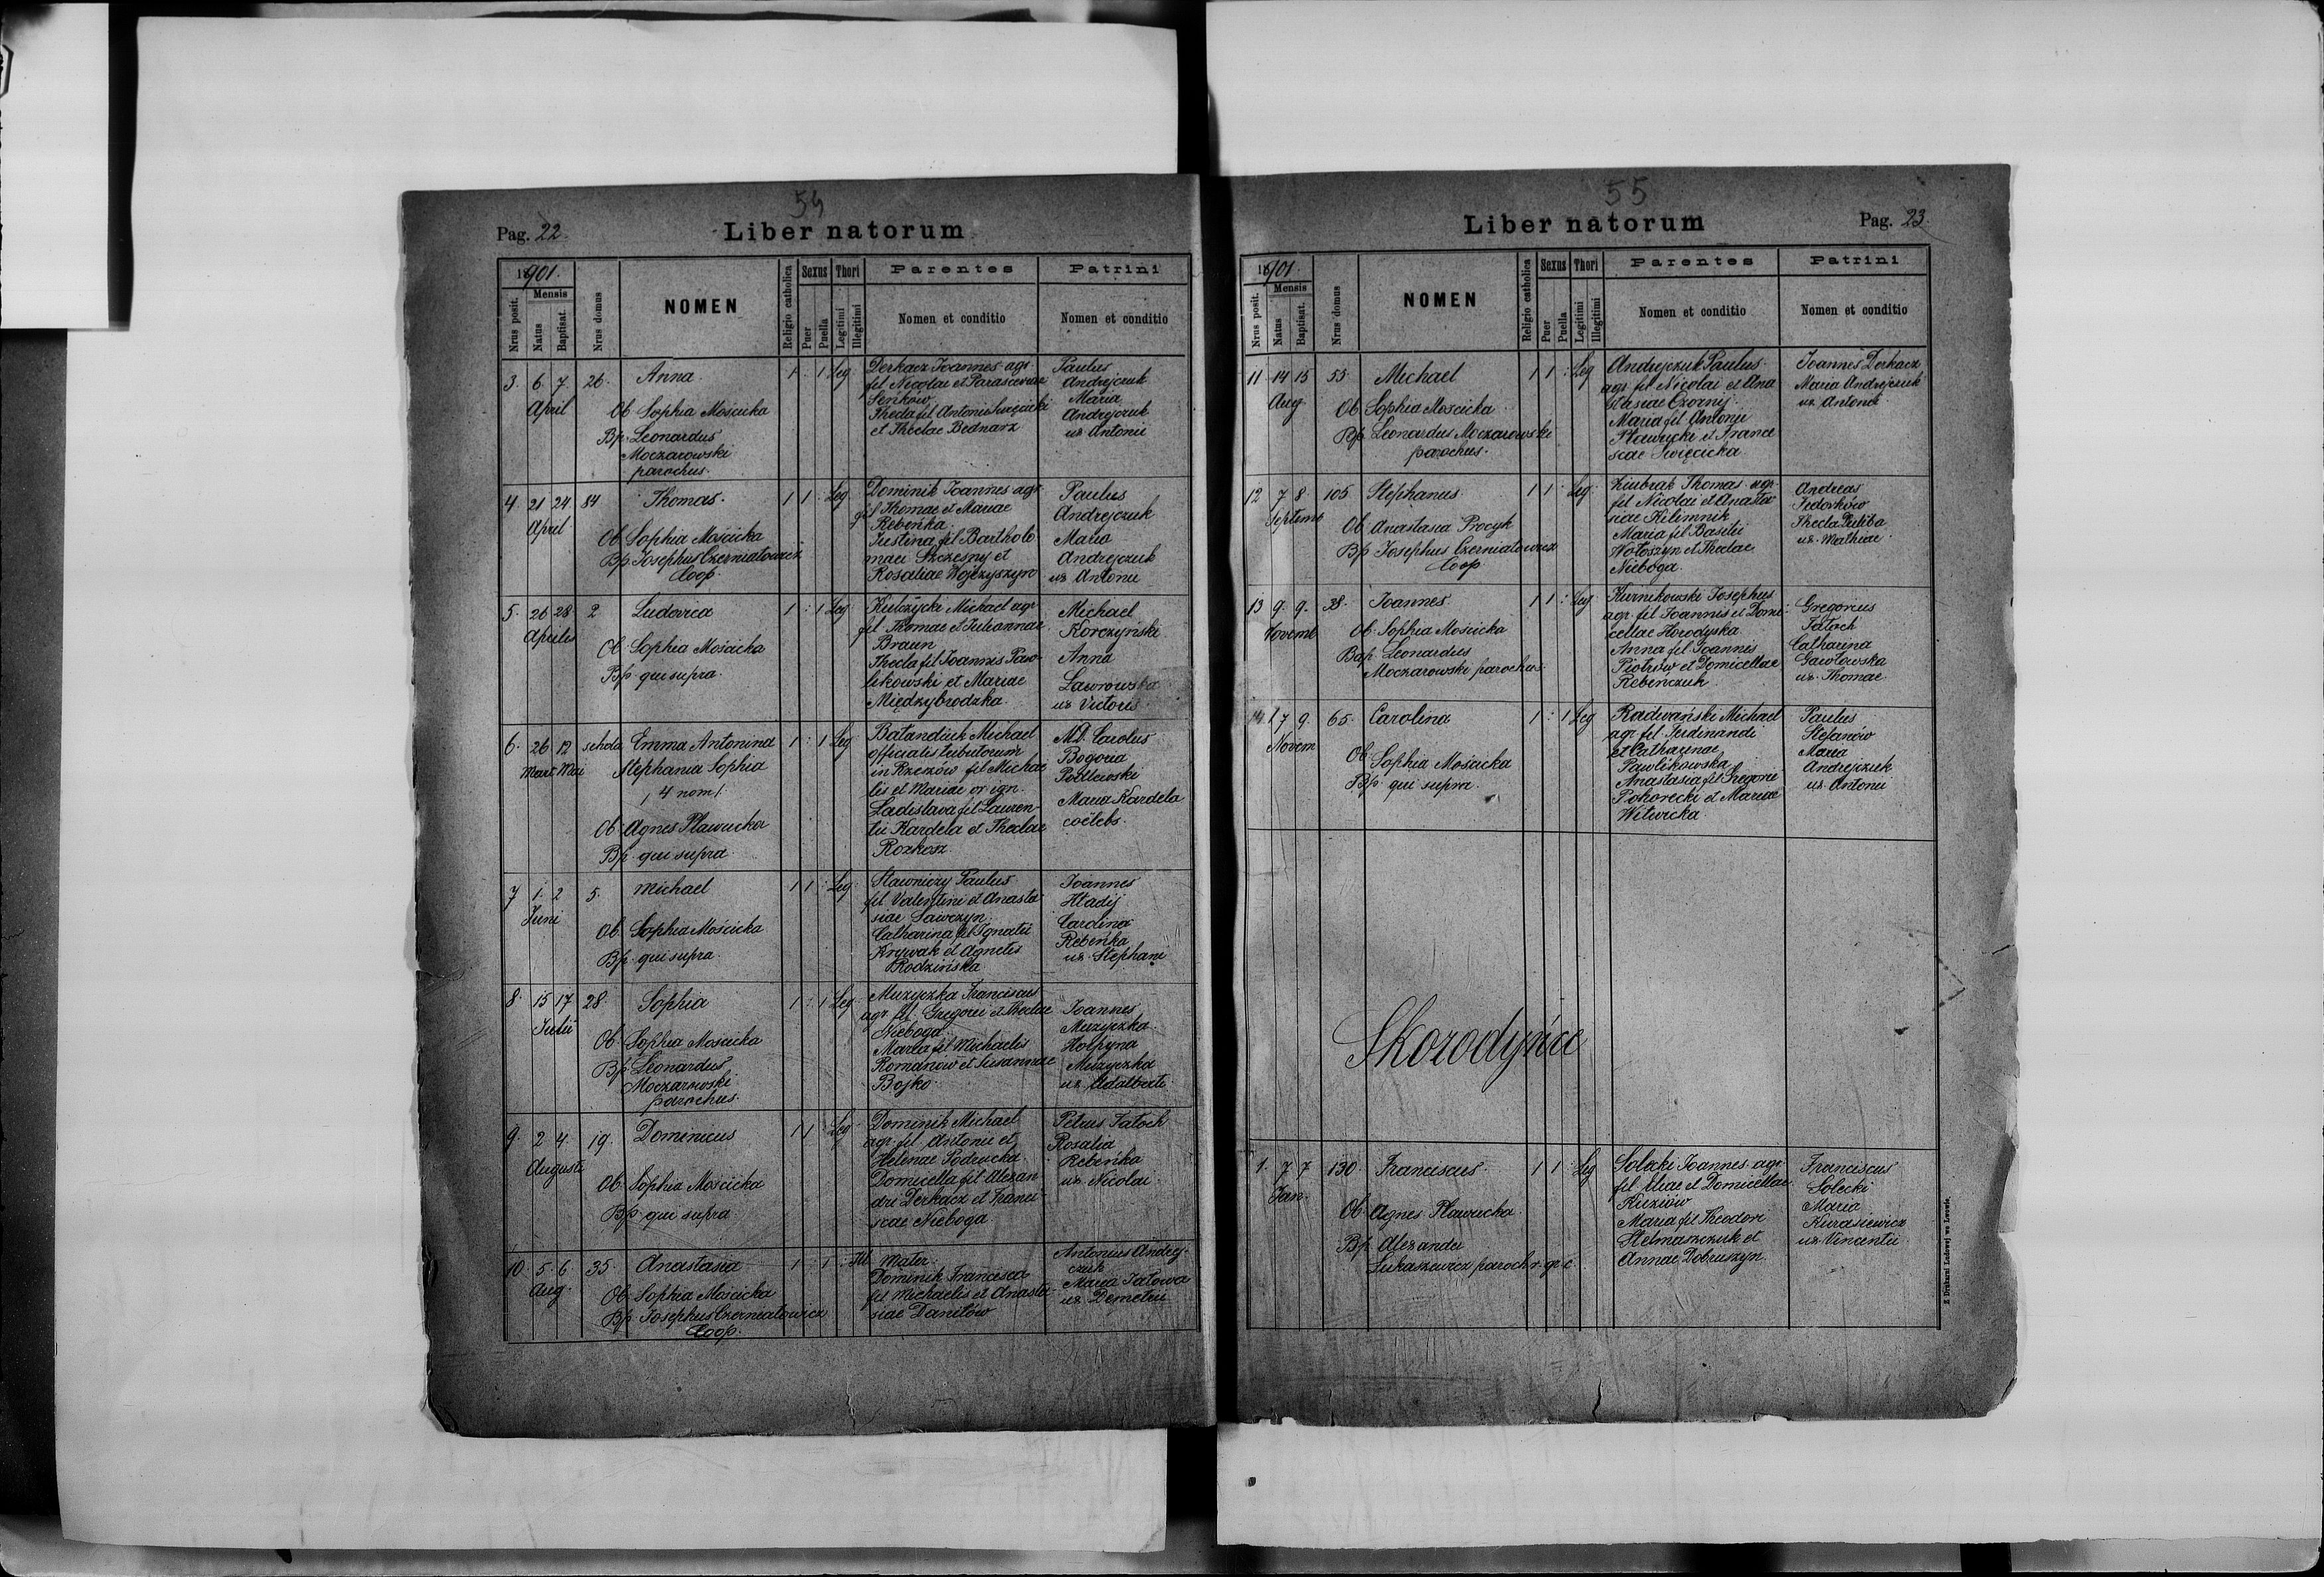 54
Pag. 22.
Liber natorum
1901.
Nrus posit.
Mensis
Natus
Baptisat.
Nrus domus
NOMEN
Religio catholica
Sexus
Puer
Puella
Thori
Legitimi
Illegitimi
Parentes
Nomen et conditio
Patrini
Nomen et conditio
3. 6. 7. 26. Anna 1 : 1 Leg
April
Ob Sophia Mościcka
Bp. Leonardus
Moczarowski
parochus.
Derkacz Joannes agr
fil Nicolai et Parascevae
Senkow
Thecla fil Antonii Święcicki
et Theclae Bednarz
Paulus
Andrejczuk
Maria
Andrejczuk
ux Antonii
4 21 24 84 Thomas. 1 1 : Leg
April
Ob. Sophia Mościcka
Bp. Josephus Czerniatowicz
Coop.
Dominik Joannes agr
fil Thomae et Mariae
Rebeńka
Justina fil Bartholo
maei Szczesny et
Rosaliae Wojczyszyn
Paulus
Andrejczuk
Maria
Andrejczuk
ux Antonii
5. 26 28 2 Ludovica 1 : 1 Leg
Aprilis
Ob. Sophia Mościcka
Bp. qui supra.
Kulczycki Michael agr
fil Thomae et Juliannae
Braun
Thecla fil Joannis Paw-
likowski et Mariae
Międzybrodzka.
Michael
Korczyński
Anna
Lawrowska
ux Victoris.
6. 26 12 schola Emma Antonina 1 : 1 Leg
Mart. Mai
Stephania Sophia
/ 4 nom /.
Ob. Agnes Pławucka
Bp. qui supra.
Batandiuk Michael
officialis tributorum
in Rzeszów fil Michae
lis et Mariae
Ladislava fil Lauren-
tii Kardela et Theclae
Rozkosz.
MD. Carolus
Bogoria
Podlewski
Maria Kardela
coelebs.
7 1. 2 5. Michael 1 1 : Leg
Juni
Ob. Sophia Mościcka
Bp. qui supra.
Stawniczy Paulus
fil Valentini et Anasta
siae Sawczyn
Catharina fil Ignatii
Krywak et Agnetis
Rodzińska
Joannes
Hładij
Carolina
Rebeńka
ux. Stephani
8. 15 17 28. Sophia 1 : 1 Leg
Julii
Ob. Sophia Mościcka
Bp. Leonardus
Moczarowski
parochus.
Muzyczka Franciscus
agr. fil. Gregorii et Theclae
Nieboga
Maria fil Michaelis
Romanow et Susannae
Bojko
Joannes
Muzyczka
Hołpyna
Muzyczka
ux. Adalberti
9. 2 4. 19. Dominicus 1 1 : Leg
Augusti
Ob. Sophia Mościcka
Bp. qui supra
Dominik Michael
agr. fil Antonii et
Helenae Podrucka
Domicella fil Alexan
dri Derkacz et Franci
scae Nieboga
Petrus Tatoch
Rosalia
Rebeńka
ux. Nicolai
10. 5. 6. 35. Anastasia 1 : 1 : Ill
Aug.
Ob. Sophia Mościcka
Bp. Josephus Czerniatowicz
Coop.
Mater
Dominik Francisca
fil Michaelis et Anasta
siae Danilów
Antonius Andrej-
czuk
Maria Tatowa
ux. Demetrii
55
Liber natorum
Pag. 23.
1901.
Nrus posit.
Mensis
Natus
Baptisat.
Nrus domus
NOMEN
Religio catholica
Sexus
Puer
Puella
Thori
Legitimi
Illegitimi
Parentes
Nomen et conditio
Patrini
Nomen et conditio
11 14 15 53. Michael 1 1 : Leg
Aug
Ob. Sophia Mościcka
Bp. Leonardus Moczarowski
parochus.
Andrejczuk Paulus
agr. fil Nicolai et Ana
stasiae Czornij
Maria fil Antonii
Pławucki et Franci
scae Święcicka
Joannes Derkacz
Maria Andrejczuk
ux. Antonii
12 7 8 105 Stephanus 1 1 : Leg
Septemb
Ob. Anastasia Procyk
Bp. Josephus Czerniatowicz
Coop
Ziubrak Thomas agr.
fil Nicolai et Anasta
siae Kilimnik
Maria fil Basilii
Wołoszyn et Theclae
Nieboga.
Andreas
Fedorków
Thecla Puliba
ux. Mathiae
13 9. 9. 38. Joannes 1 1 : Leg
Novemb
Ob. Sophia Mościcka
Bap. Leonardus
Moczarowski parochus.
Kurnikowski Josephus
agr. fil Joannis et Domi
cellae Horodyska
Anna fil Joannis
Piotrów et Domicellae
Rebeńczuk
Gregorius
Tatoch
Catharina
Gawłowska
ux. Thomae
14. 7 9. 65. Carolina 1 : 1 Leg
Novem
Ob. Sophia Mościcka
Bp. qui supra.
Radwański Michael
agr. fil Ferdinandi
et Catharinae
Pawlikowska
Anastasia fil Gregorii
Pohorecki et Mariae
Witwicka.
Paulus
Stefanów
Maria
Andrejczuk
ux. Antonii
Skorodyńce
1. 7 7 130 Franciscus. 1 1 : Leg
Jan.
Ob. Agnes Pławucka
Bp. Alexander
Łukaszewicz paroch r. gr. c.
Solecki Joannes agr
fil Eliae et Domicellae
Kuziów
Maria fil Theodori
Stelmaszczuk et
Annae Dobruszyn
Franciscus
Solecki
Maria
Kurasiewicz
ux. Vincentii
Z Drukarni Ludowej we Lwowie.